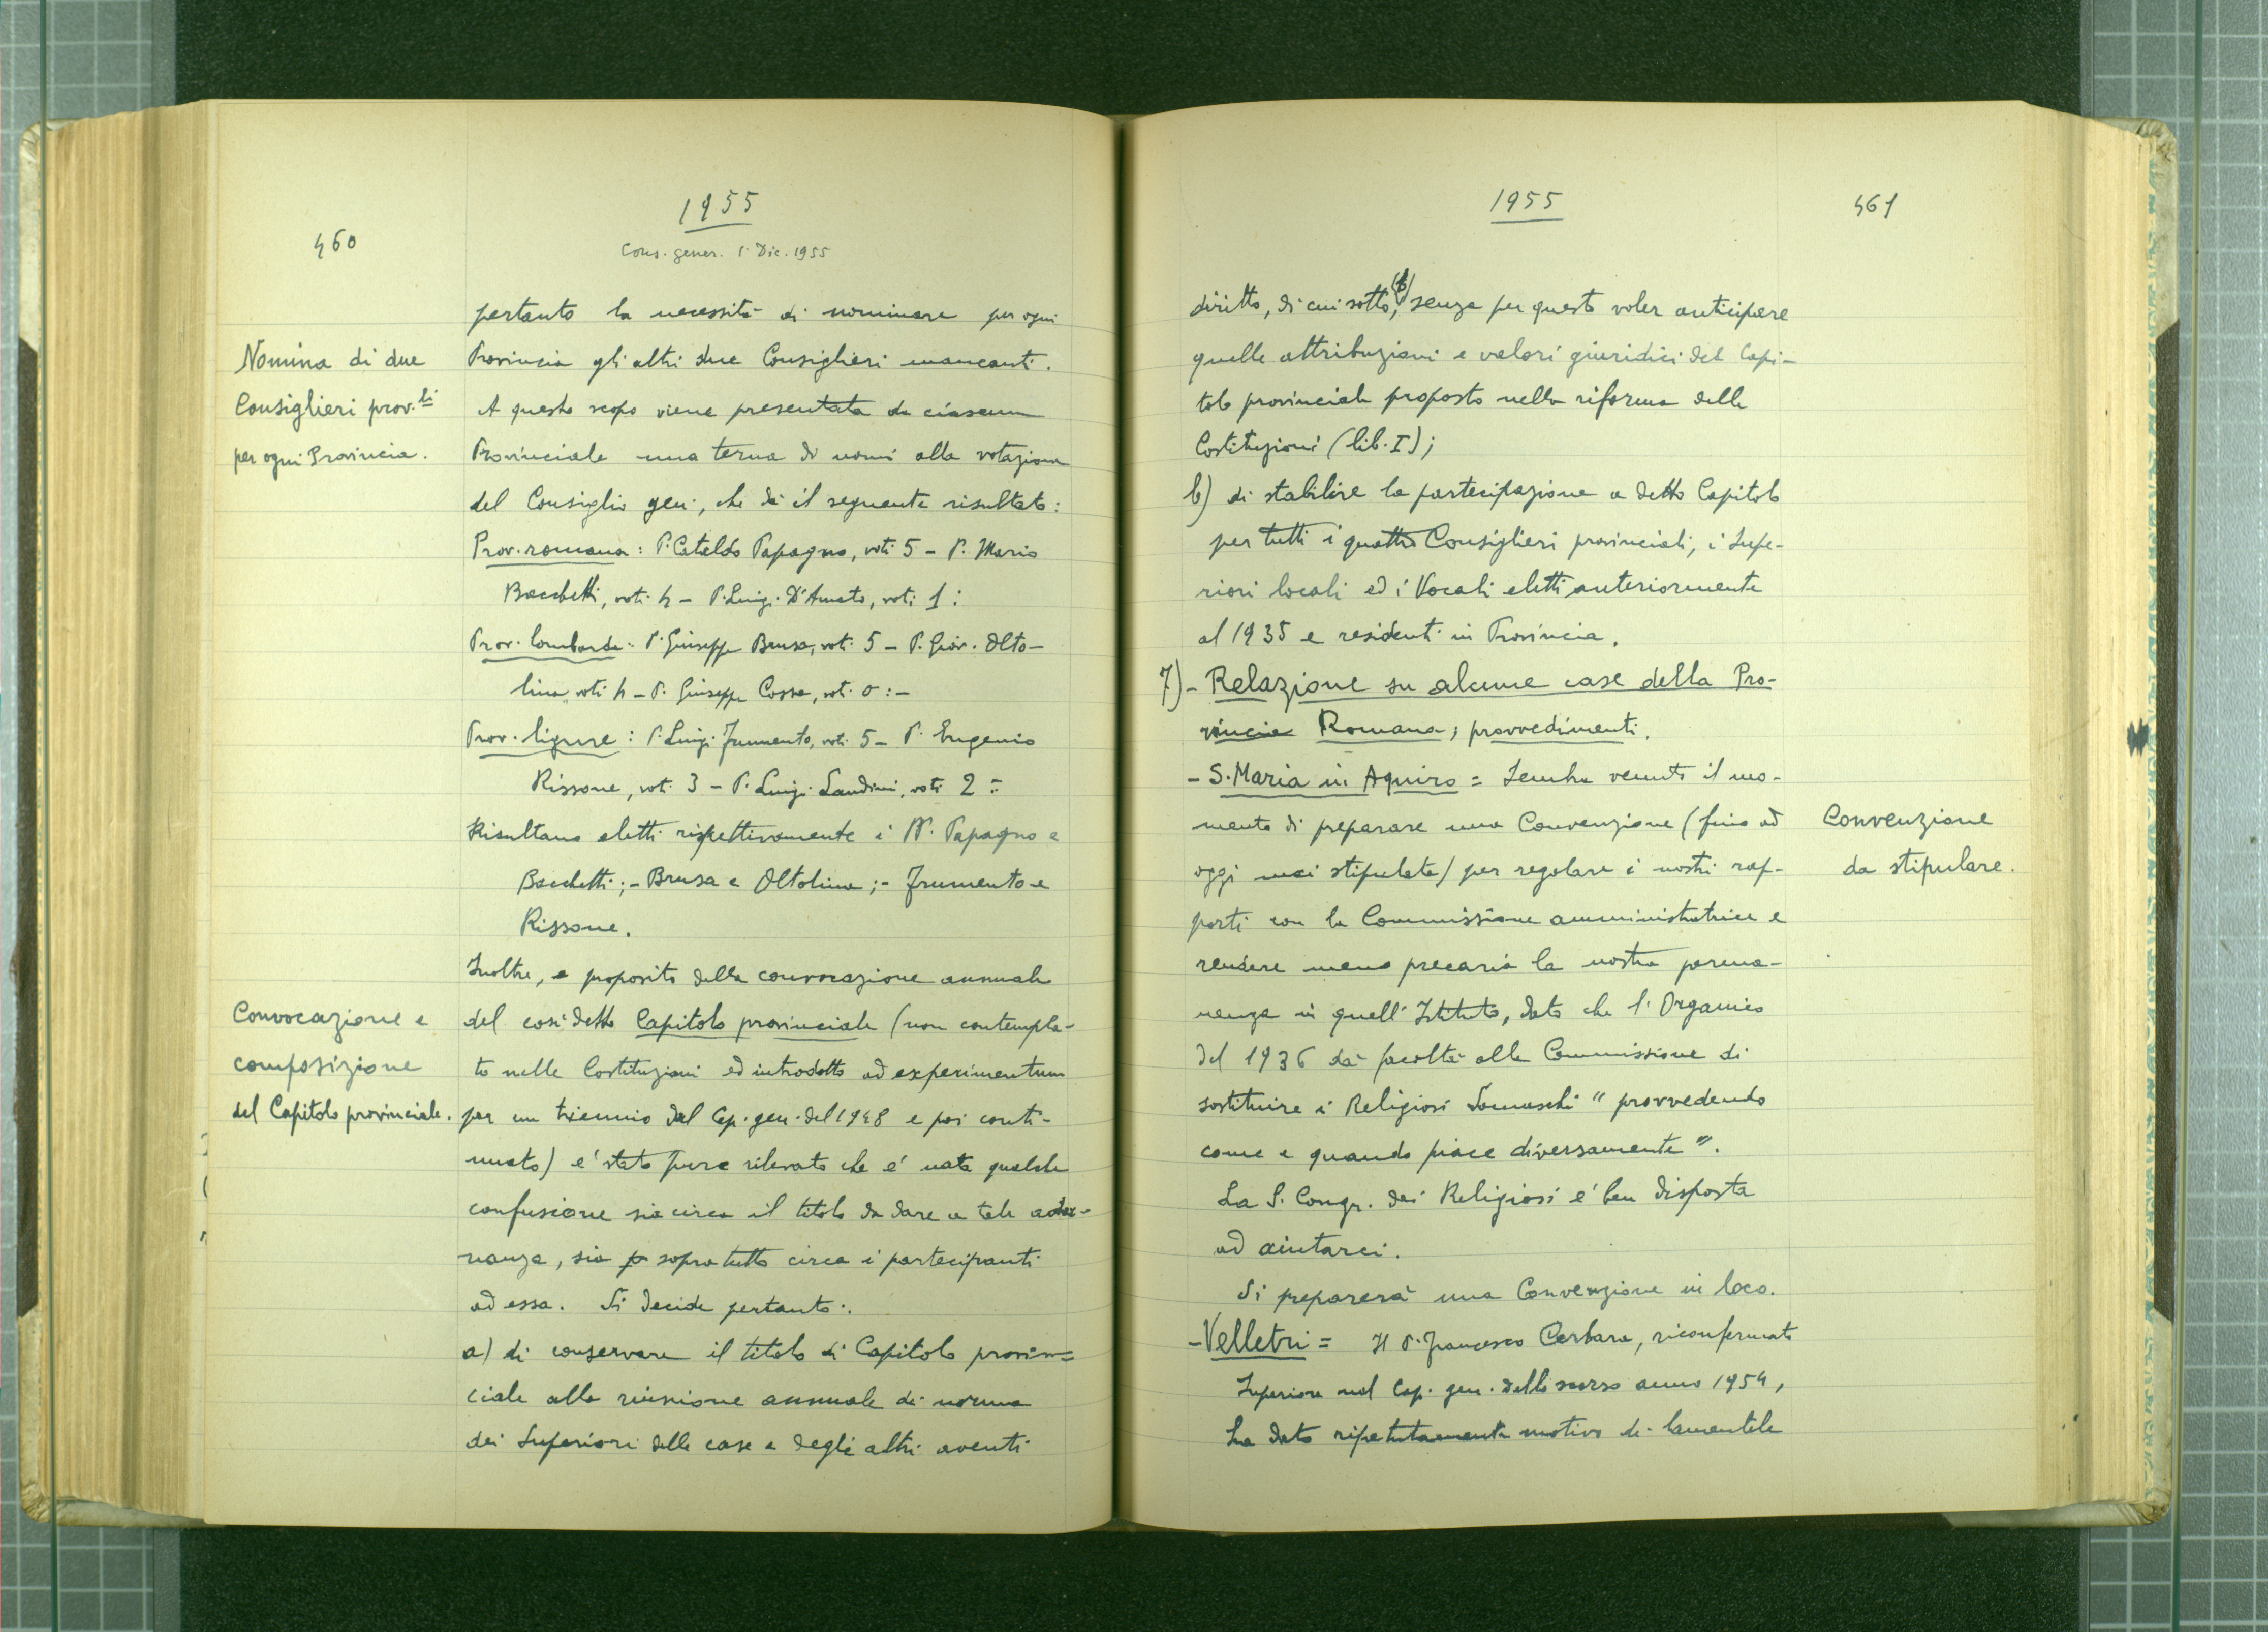 460
1955
Cons. gener. 1. Dic. 1955
Nomina di due
Consiglieri prov.li
per ogni Provincia.
pertanto la necessità di nominare per ogni
Provincia gli altri due Consiglieri mancanti.
A questo scopo viene presentata da ciascun
Provinciale una terna di nomi alla votazione
del Consiglio gen., che dà il seguente risultato:
Prov. romana: P. Cataldo Papagno, voti 5 - P. Mario
Bacchetti, voti 4 - P. Luigi D'Amato, voti 1:
Prov. lombarda: P. Giuseppe Brusa, voti 5 - P. Giov. Olto-
lina, voti 4 - P. Giuseppe Cossa, voti 0:-
Prov. ligure: P. Luigi Frumento, voti 5 - P. Eugenio
Rissone, voti 3 - P. Luigi Landini, voti 2 =
Risultano eletti rispettivamente i PP. Papagno e
Bacchetti; - Brusa e Oltolina; - Frumento e
Rissone.
Convocazione e
composizione
del Capitolo provinciale.
Inoltre, a proposito della convocazione annuale
del così detto Capitolo provinciale (non contempla-
to nelle Costituzioni ed introdotto ad experimentum
per un triennio dal Cap. gen. del 1948 e poi conti-
nuato) e' stato pure rilevato che e' nata qualche
confusione sia circa il titolo da dare a tale adu-
nanza, sia sopratutto circa i partecipanti
ad essa. Si decide pertanto:
a) di conservare il titolo di Capitolo provin=
ciale alla riunione annuale di norma
dei Superiori delle case e degli altri aventi
1955
461
diritto, di cui sotto, (b) senza per questo voler anticipare
quelle attribuzioni e valori giuridici del Capi-
tolo provinciale proposto nella riforma delle
Costituzioni (lib. I);
b) di stabilire la partecipazione a detto Capitolo
per tutti i quattro Consiglieri provinciali, i Supe-
riori locali ed i Vocali eletti anteriormente
al 1935 e residenti in Provincia.
7) - Relazione su alcune case della Pro-
vincia Romana; provvedimenti.
- S. Maria in Aquiro = Sembra venuto il mo-
mento di preparare una Convenzione (fino ad
oggi mai stipulata) per regolare i nostri rap-
porti con la Commissione amministratrice e
rendere meno precaria la nostra perma-
nenza in quell'Istituto, dato che l'Organico
del 1936 dà facoltà alla Commissione di
sostituire i Religiosi Somaschi "provvedendo
come e quando piace diversamente".
La S. Congr. dei Religiosi e' ben disposta
ad aiutarci.
Si preparerà una Convenzione in loco.
Convenzione
da stipulare.
- Velletri = Il P. Francesco Cerbara, riconfermato
Superiore nel Cap. gen. dello scorso anno 1954,
ha dato ripetutamente motivo di lamentele